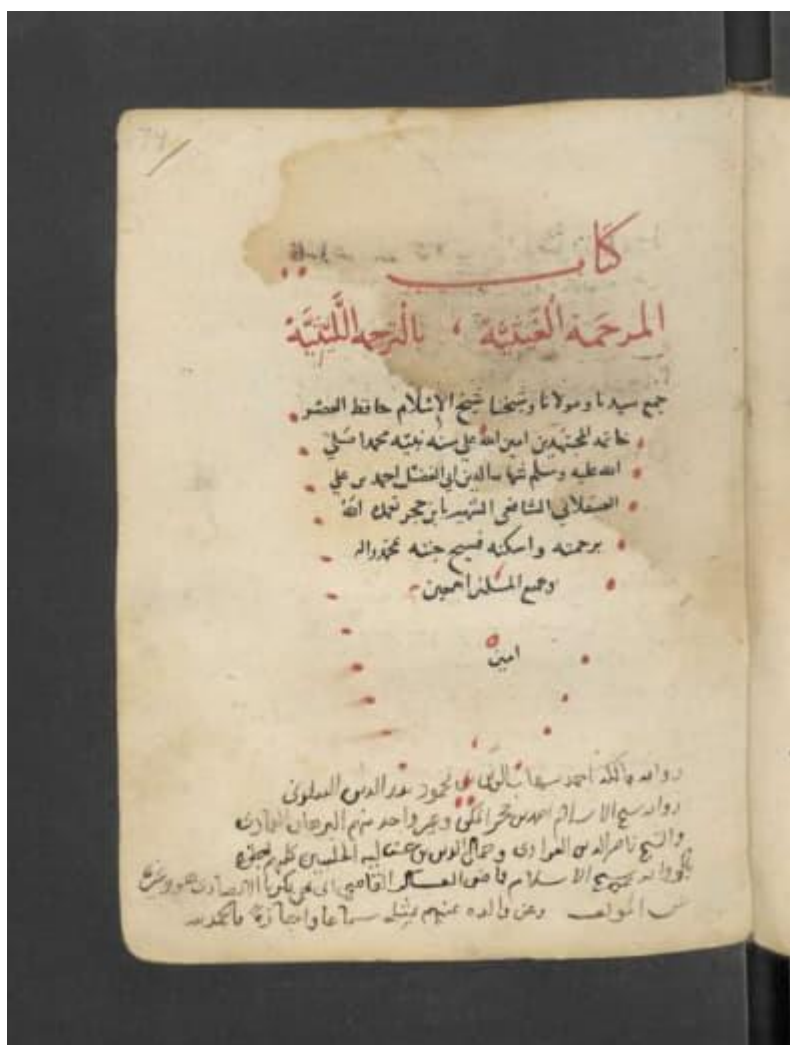 74
كتاب
المرحمة الغيثية ، بالترجمة الليثية
جمع سيدنا ومولانا وشيخنا شيخ الإسلام حافظ العصر
خاتمة المجتهدين امين الله علي سنة نبيه محمد صلي
الله عليه وسلم شهاب الدين ابي الفضل احمد بن علي
العسقلاني الشافعي الشهير بابن حجر تغمده الله
برحمته واسكنه فسيح جنته بمحمد واله
وجميع المسلمين اجمعين
امين
رواية مالكه احمد بن نور الدين
رواية شيخ الاسلام احمد بن حجر المكي وغير واحد منهم البرهان
والشيخ ناصر الدين وجمال الدين بن
شيخ الاسلام قاضي العساكر القاضي ابي يحيى زكريا الانصاري
عن المولف وعن والده عنهم بمثله سماعا واجازة